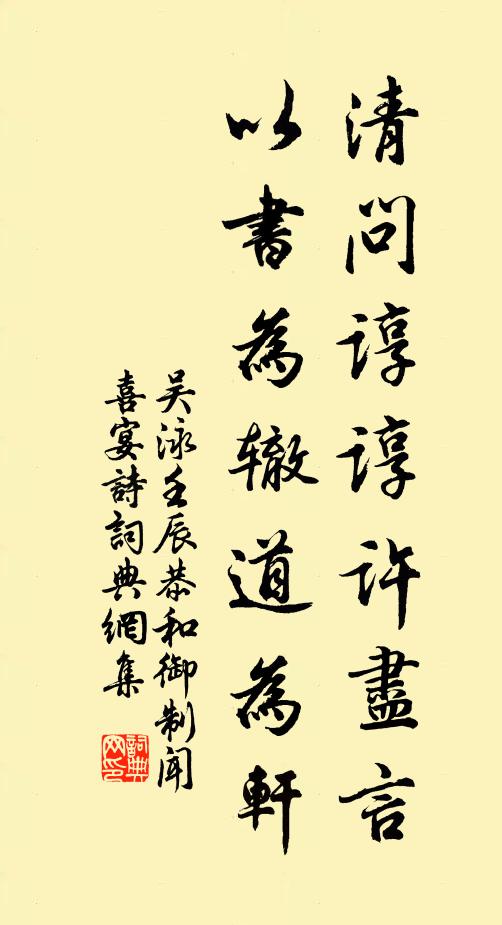 清問諄諄許盡言
以書為辙道為軒
吴泳壬辰恭和御制闻
喜宴詩詞典網集
詞典
网印